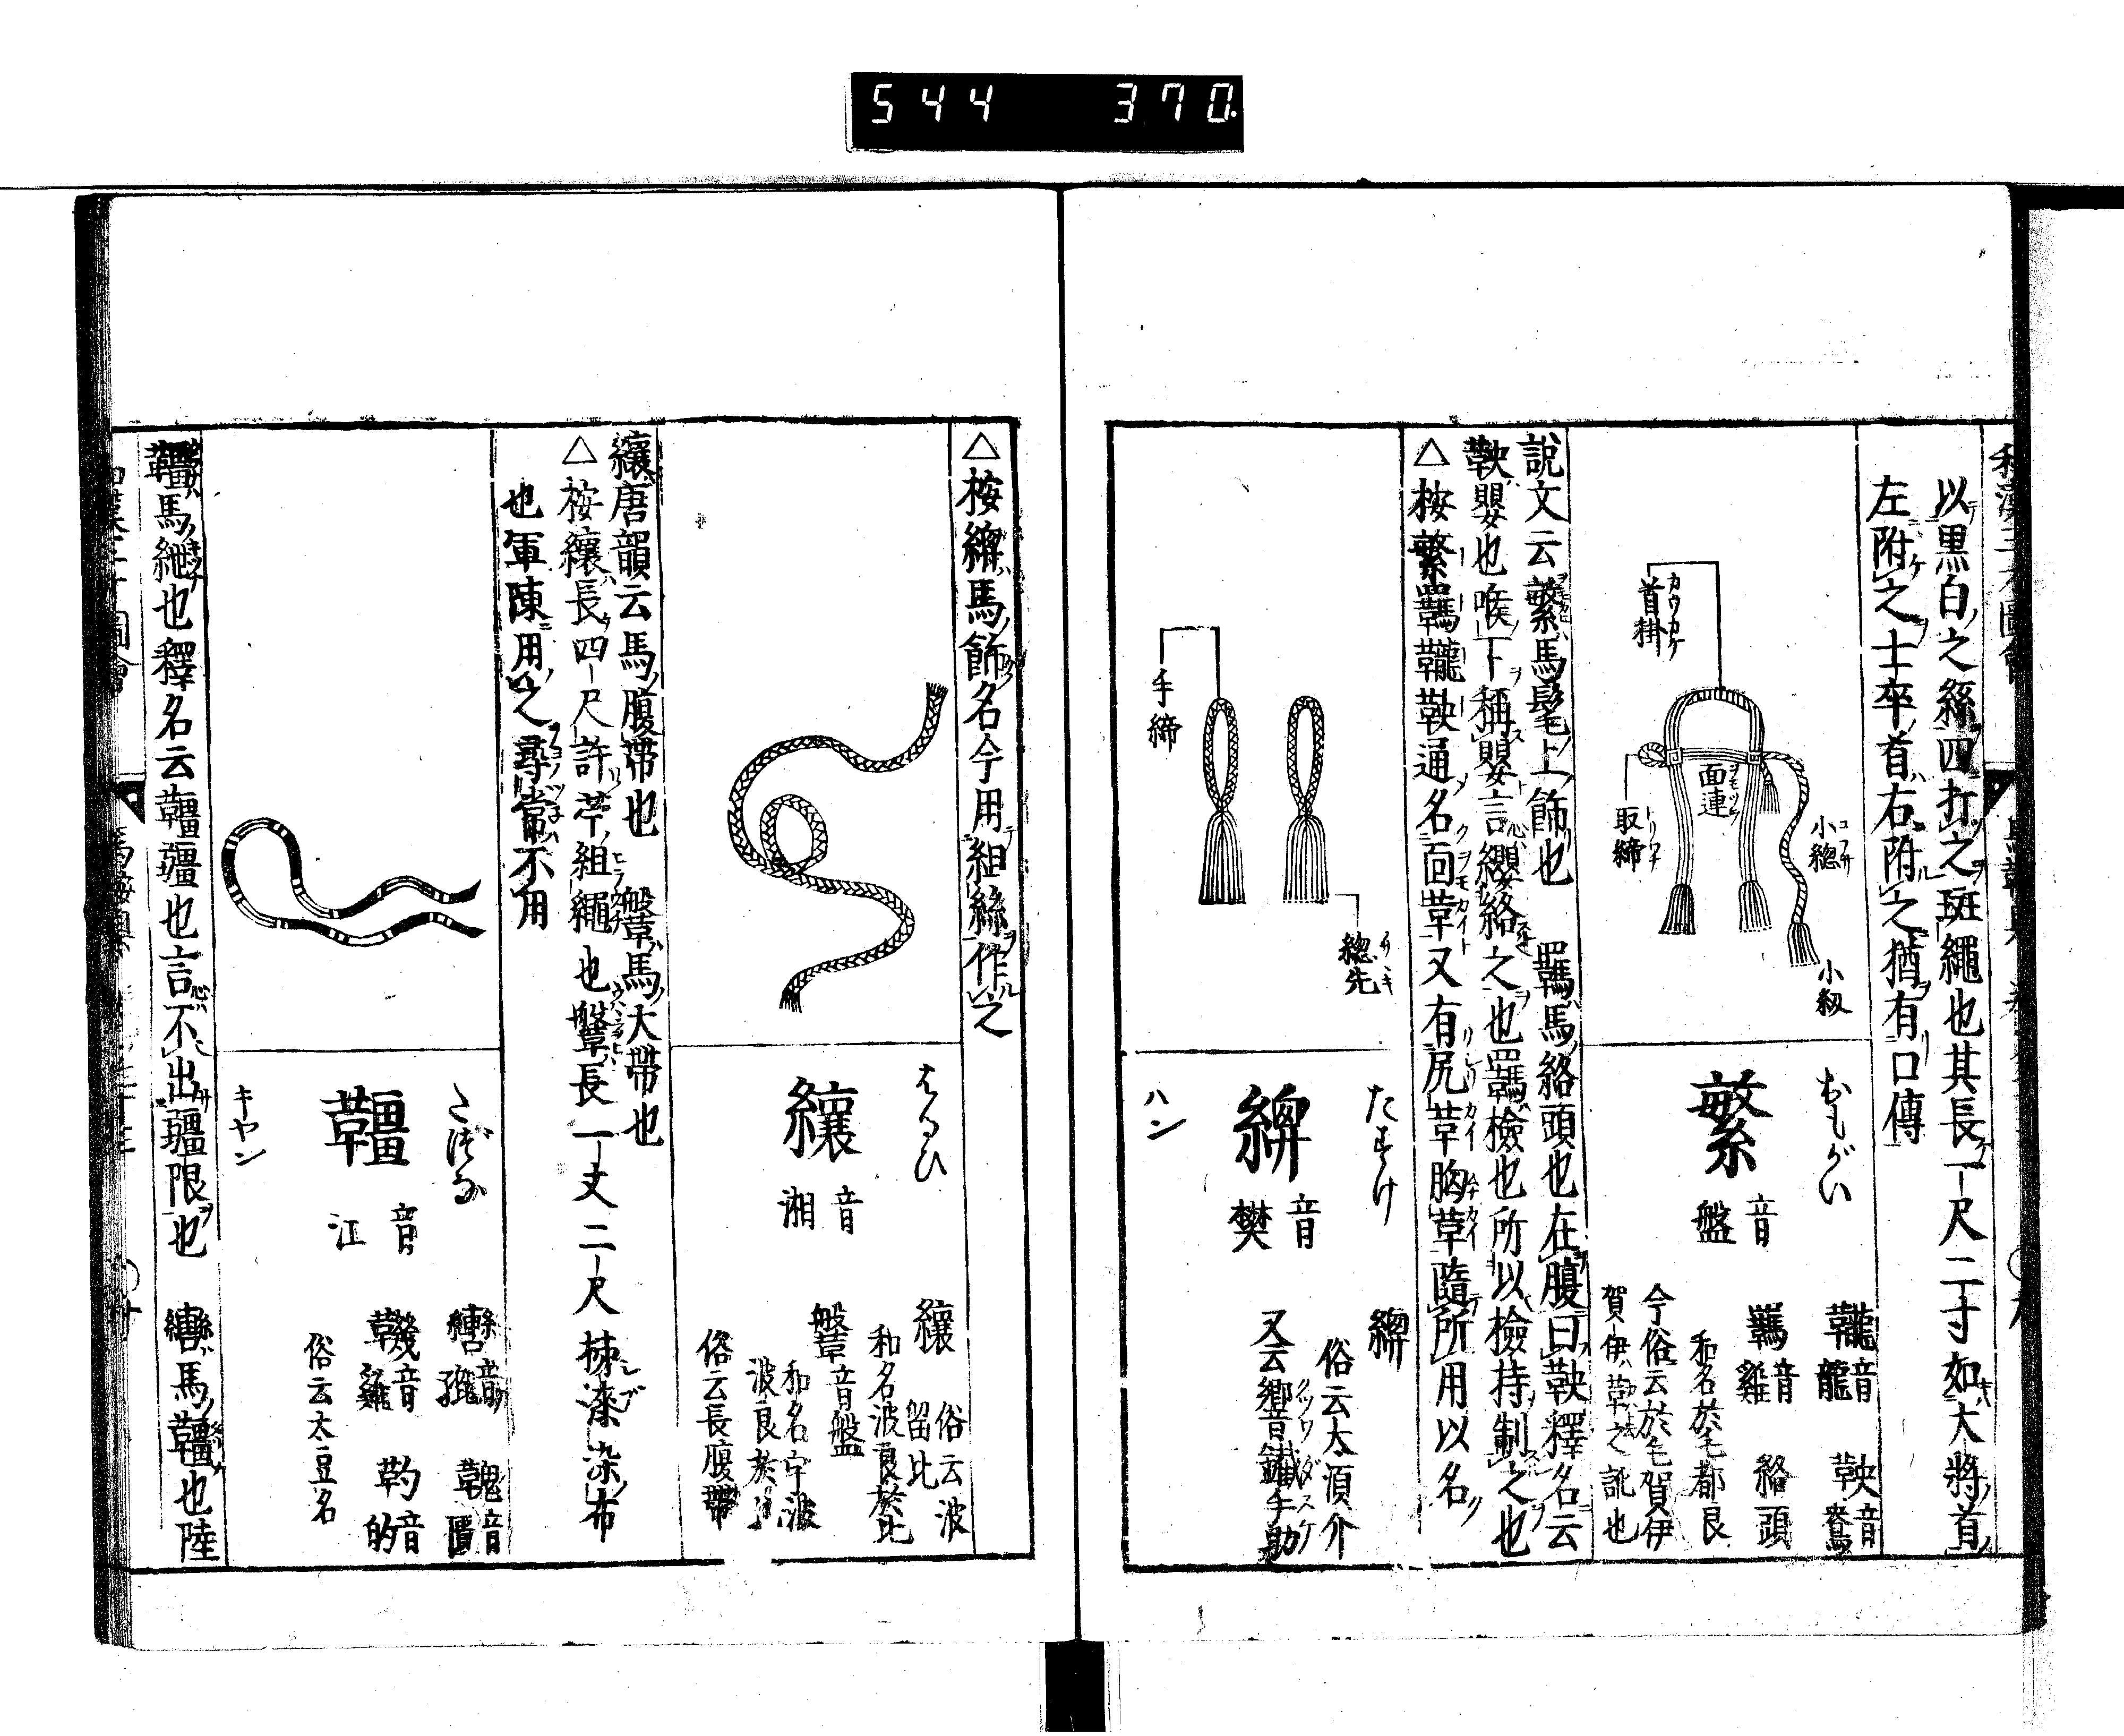 544 370
以黒白之絲四打之斑繩也其長一尺二寸如大將首
左附之士卒首右附之猶有口傳
首掛
カウカケ
面連
取縮
小總
コフサ
小級
おもがい
繁
音盤
韄音龍
鞅音鴦
羈音雞
絡頭
和名於毛都良
今俗云於毛賀伊
賀伊草之訛也
說文云繁馬髦上飾也 羈馬絡頭也在腹曰鞅釋名云
鞅嬰也喉下稱嬰言纓絡之也羈檢也所以檢持制之也
△按繁羈韄鞅通名面草又有尻草胸草隨所用以名
手縮
總先
たすけ
繲
音樊
ハン
俗云太須介
又云響鐵手助
クツワダスケ
△按繲馬飾名今用組絲作之
はるひ
纕
音湘
纕
俗云波留比
和名波良於比
鞶音盤
和名宇波波良於比
俗云長腹帶
纕唐韻云馬腹帶也 鞶馬大帶也
△按纕長四尺許苧組繩也鞶長一丈二尺揀漆染布
也軍陳用之尋常不用
たづな
韁
音江
キヤン
轡音
鞿音雞
靮音的
俗云太豆名
韁馬紲也釋名云韁疆也言不出疆限也 轡馬韁也陸